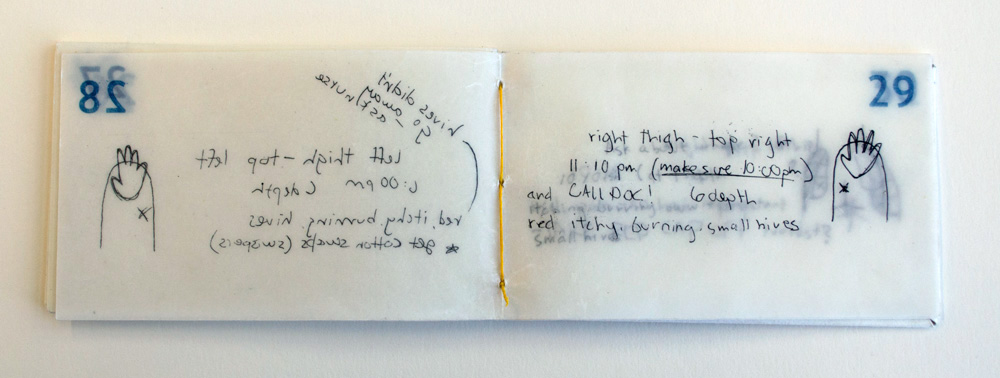 28
hives didn't
go away
- ask nurse
left thigh - top left
6:00 pm 6 depth
red, itchy, burning, hives
* get cotton swabs (swspers)
29
right thigh - top right
11:10 pm (make sure 10:00pm)
and CALL DOC! 6 depth
red itchy, burning, small hives